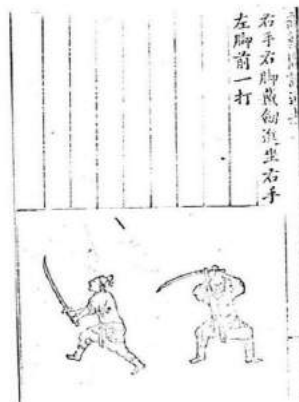 右手右脚戴劒進坐右手
左脚前一打